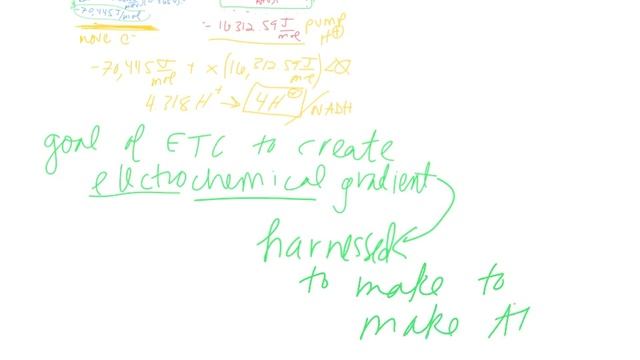 -70,445 J/mol
move e-
= 16312.59 J/mol pump H+
-70,445 J/mol + x (16,312.59 J/mol)
4.318 H+ → 4H+ / NADH
goal of ETC to create
electrochemical gradient
harnessed
to make to
make AT